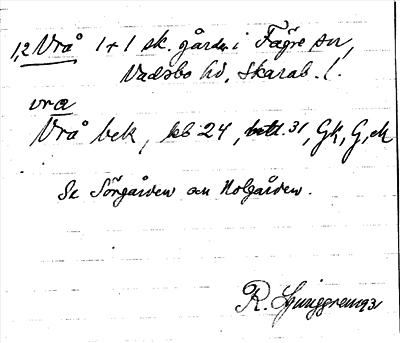 1,2 Vrå 1+1 sk. gårdar i Fägre sn,
Vadsbo hd, Skarab. l.
vra
Vrå bek, kb 24, mtl. 31, Gk, G, ek
Se Sörgården och Nolgården.
R. Ljunggren 1931